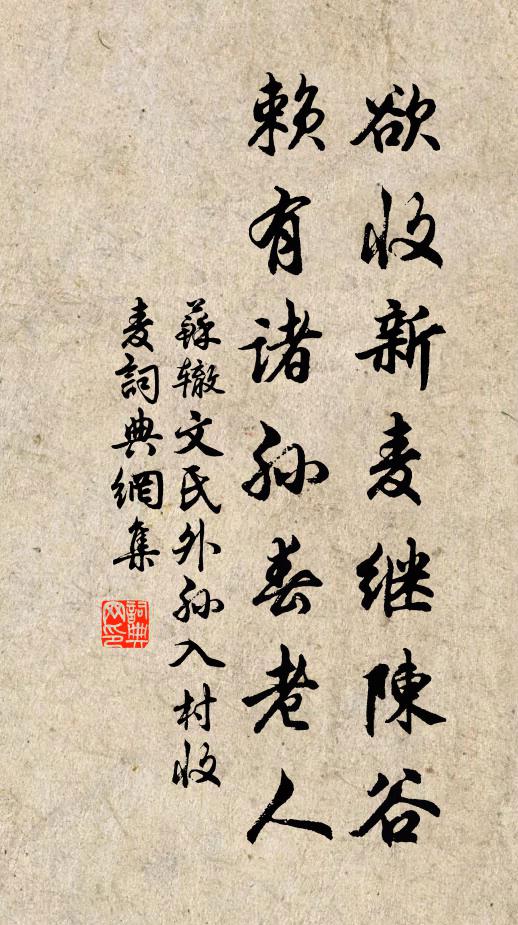 欲收新麦继陳谷
赖有诸孙替老人
蘇辙文氏外孙入村收
麦詞典網集
詞典
网印